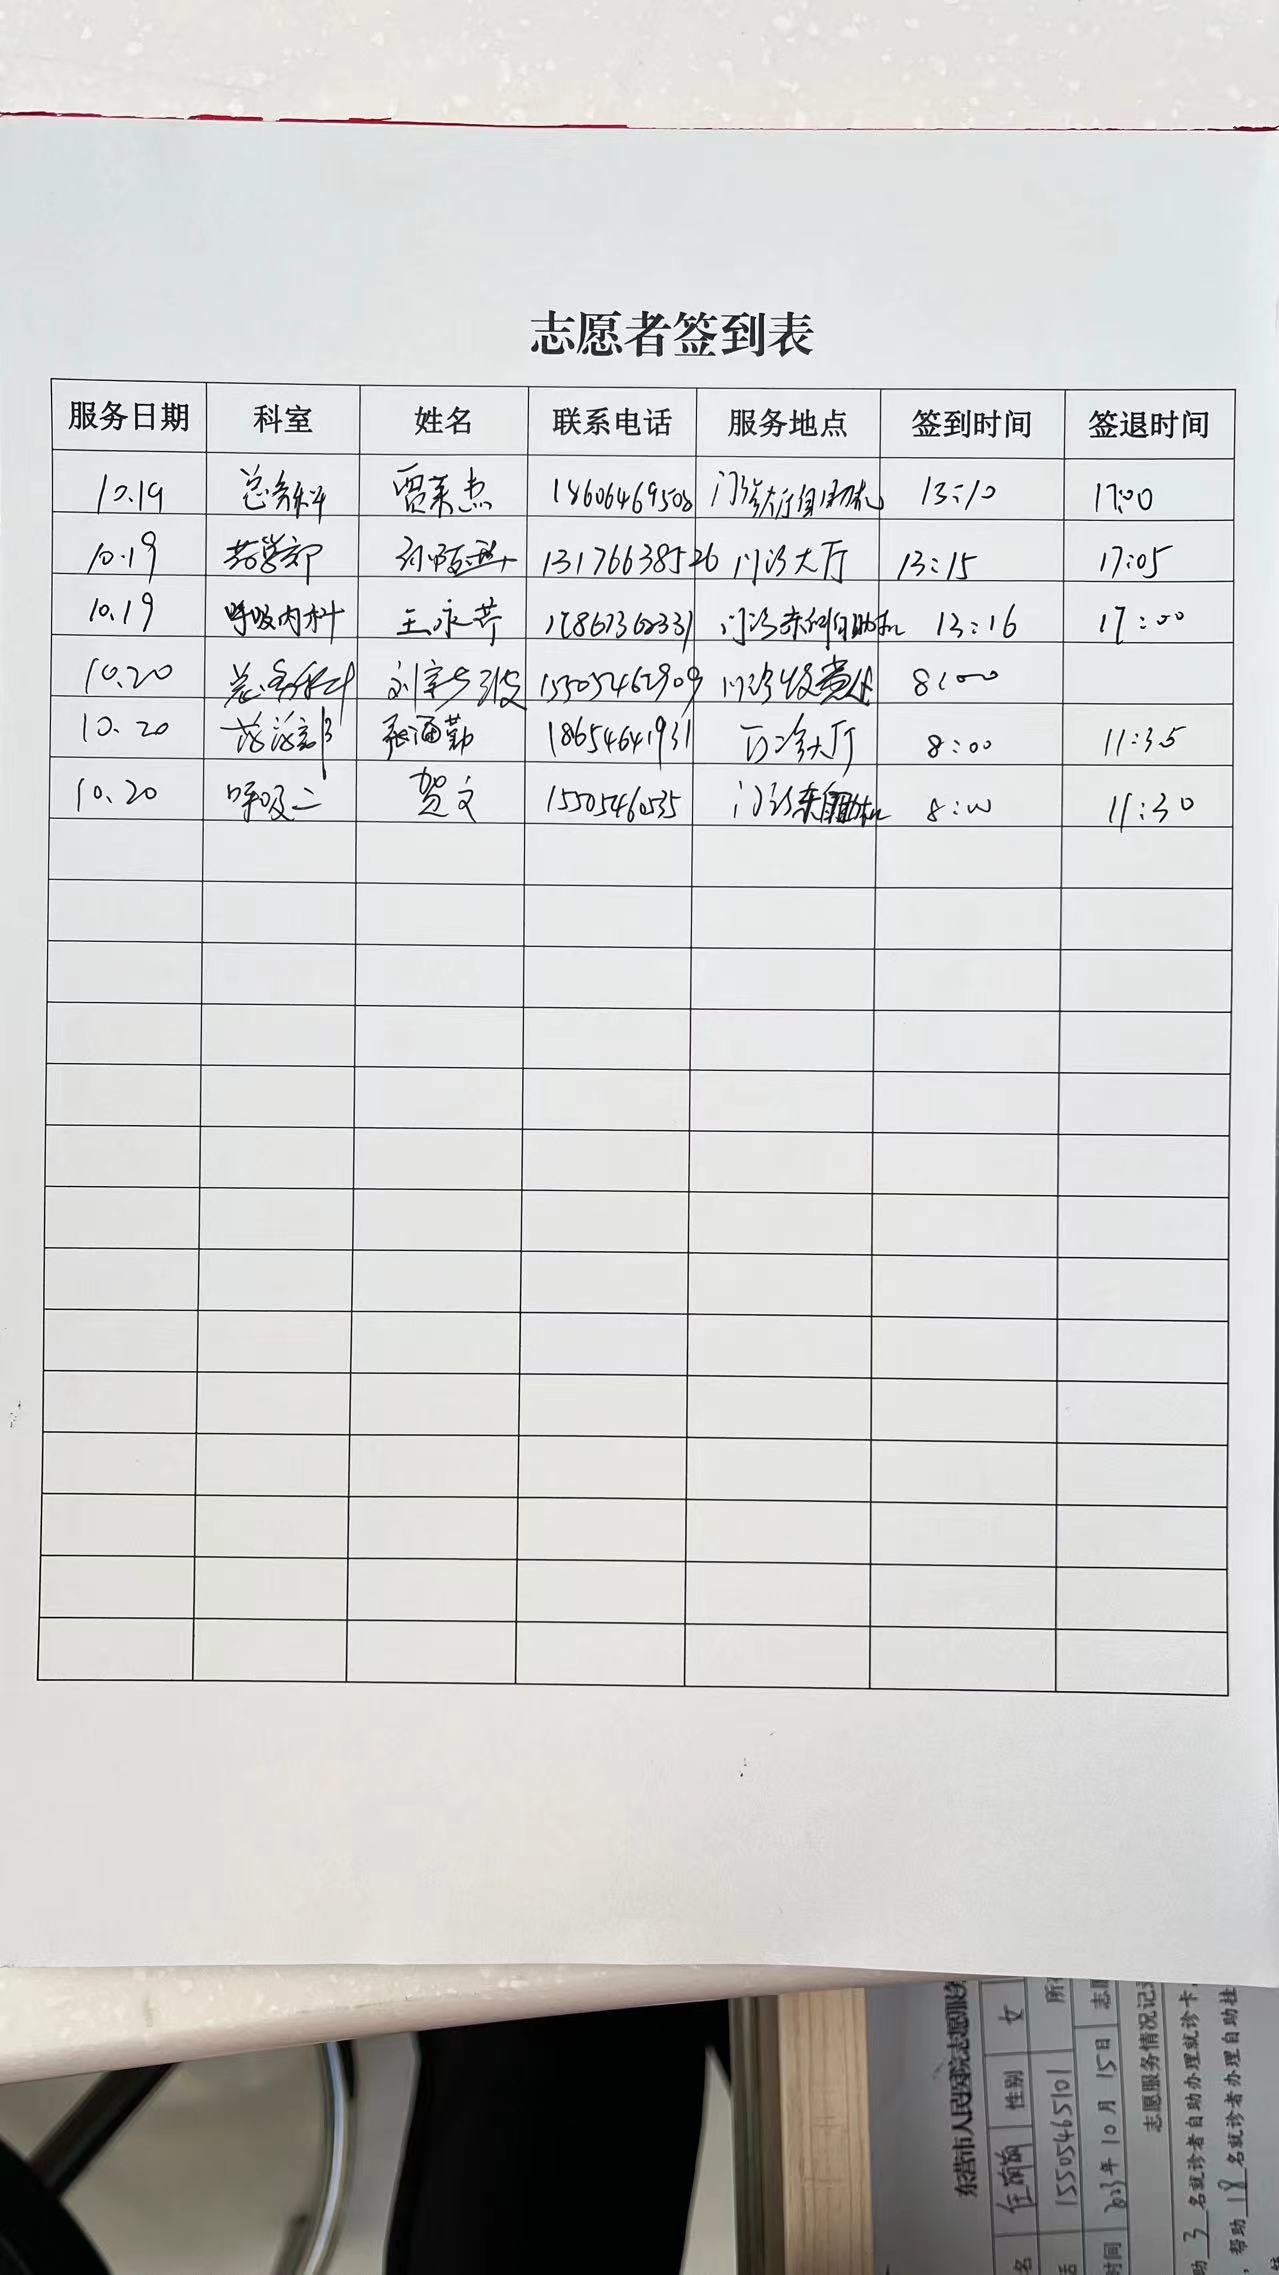 志愿者签到表
服务日期 科室 姓名 联系电话 服务地点 签到时间 签退时间
10.19 总务科 贾莱杰 18606469508 门诊大厅自助机 13:10 17:00
10.19 药学部 13176638526 门诊大厅 13:15 17:05
10.19 呼吸内科 王永芹 门诊东侧自助机 13:16 17:00
10.20 总务科 15505462909 门诊收费处 8:00
10.20 张通勤 18654641931 门诊大厅 8:00 11:35
10.20 呼吸二 贺文 15505460535 门诊东自助机 8:00 11:30
东营市人民医院志愿服务
名 任萌萌 性别 女
话 15505465101 所
时间 2023年10月15日 志愿
志愿服务情况记录
助 3 名就诊者自助办理就诊卡
，帮助 18 名就诊者办理自助挂